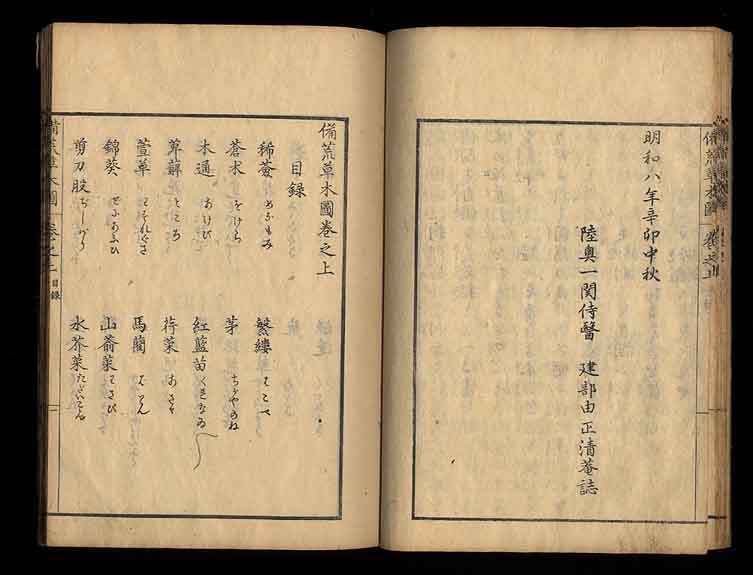 明和八年辛卯中秋
陸奥一関侍醫　建部由正清菴誌
備荒草木圖巻之上
目録
稀薟　めなもみ　　蘩縷　はこべ
蒼朮　をけら　　茅　ちがやのね
木通　あけび　　紅藍苗　くれなゐ
萆薢　ところ　　荇菜　あさゝ
萱草　わすれぐさ　　馬藺　ばりん
錦葵　ぜにあふひ　　山葵菜　わさび
剪刀股　ぢしばり　　水芥菜　たがらし
備荒草木圖　巻之上　目録
備荒草木圖　巻之上